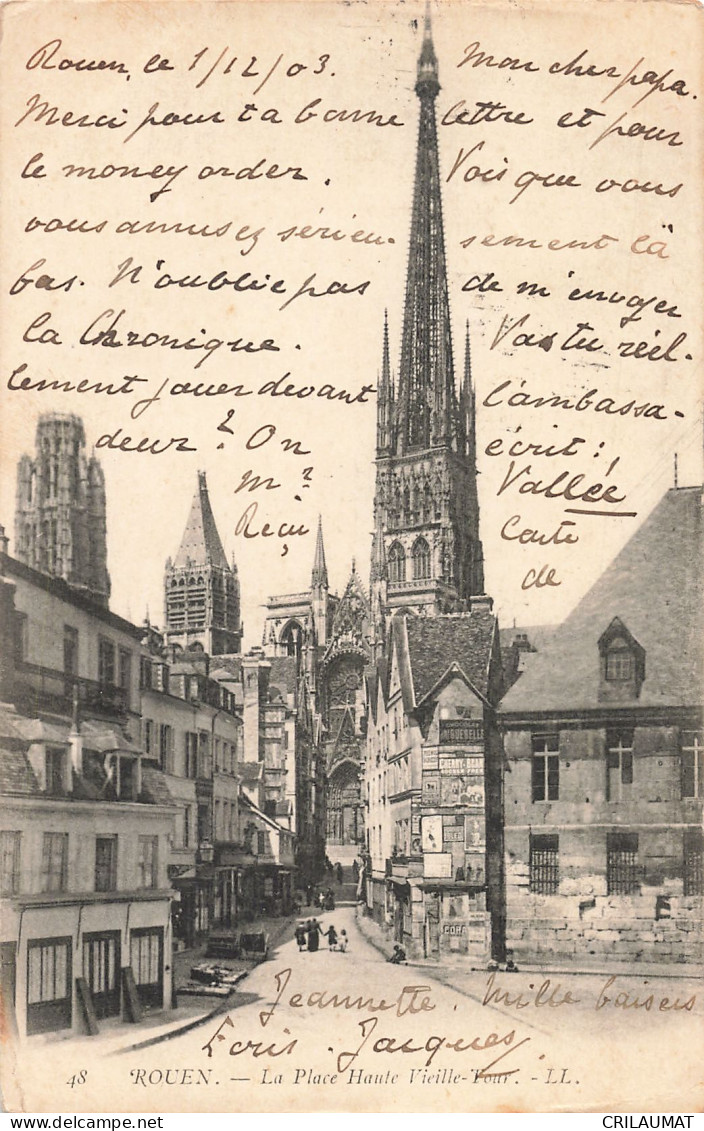 Rouen, le 1/12/03. Mon cher papa.
Merci pour ta bonne lettre et pour
le money order. Vois que vous
vous amusez sérieu- sement là
bas. N'oublie pas de m'envoyer
la Chronique. Vas tu réel-
lement jouer devant l'ambassa-
deur ? On écrit :
m ? Vallée
Reçu Carte
de
DUBONNET
CORA
Jeannette. Mille baisers
Loris - Jacques
48 ROUEN. — La Place Haute Vieille-Tour. - LL.
CRILAUMAT